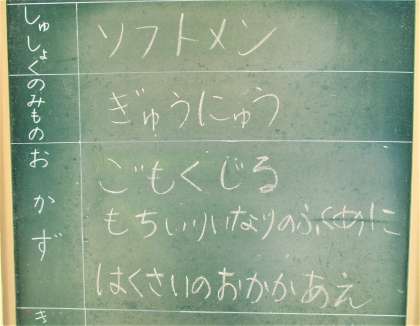 しゅしょく
ソフトメン
のみもの
ぎゅうにゅう
おかず
ごもくじる
もちいりいなりのふくめに
はくさいのおかかあえ
き